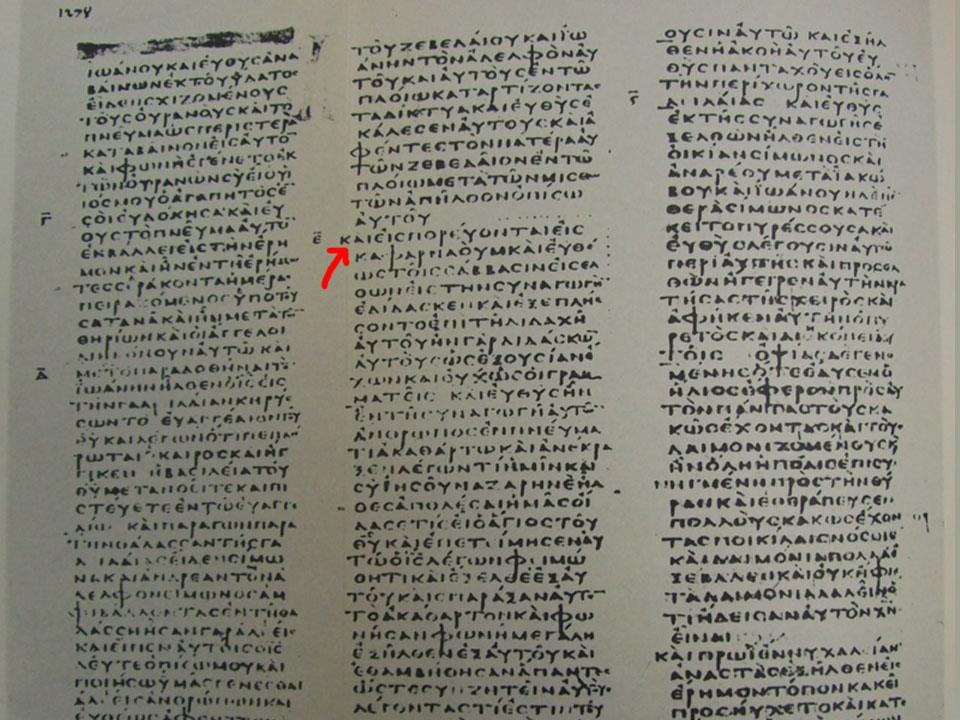 1278
ΙΩΑΝΟΥΚΑΙΕΥΘΥϹΑΝΑ
ΒΑΙΝΩΝΕΚΤΟΥΥΔΑΤΟϹ
ΕΙΔΕΝϹΧΙΖΟΜΕΝΟΥϹ
ΤΟΥϹΟΥΡΑΝΟΥϹΚΑΙΤΟ
ΠΝΕΥΜΑΩϹΠΕΡΙϹΤΕΡΑ
ΚΑΤΑΒΑΙΝΟΝΕΙϹΑΥΤΟ
ΚΑΙΦΩΝΗΕΓΕΝΕΤΟΕΚ
ΤΩΝΟΥΡΑΝΩΝϹΥΕΙΟΥΙ
ΟϹΜΟΥΟΑΓΑΠΗΤΟϹΕ
Γ
ϹΟΙΕΥΔΟΚΗϹΑΚΑΙΕΥ
ΘΥϹΤΟΠΝΕΥΜΑΑΥΤΟ
ΕΚΒΑΛΛΕΙΕΙϹΤΗΝΕΡΗ
ΜΟΝΚΑΙΗΝΕΝΤΗΕΡΗΜΩ
ΤΕϹϹΕΡΑΚΟΝΤΑΗΜΕΡΑϹ
ΠΕΙΡΑΖΟΜΕΝΟϹΥΠΟΤΟΥ
ϹΑΤΑΝΑΚΑΙΗΝΜΕΤΑΤ
ΘΗΡΙΩΝΚΑΙΟΙΑΓΓΕΛΟΙ
ΔΙΗΚΟΝΟΥΝΑΥΤΩ ΚΑΙ
Δ
ΜΕΤΑΤΟΠΑΡΑΔΟΘΗΝΑΙΤ
ΙΩΑΝΗΝΗΛΘΕΝΟΙϹΕΙϹ
ΤΗΝΓΑΛΙΛΑΙΑΝΚΗΡΥϹ
ϹΩΝΤΟ ΕΥΑΓΓΕΛΙΟΝΤΟΥ
ΘΥΚΑΙΛΕΓΩΝΟΤΙΠΕΠΛΗ
ΡΩΤΑΙΟΚΑΙΡΟϹΚΑΙΗΓ
ΓΙΚΕΝΗΒΑϹΙΛΕΙΑΤΟΥ
ΘΥΜΕΤΑΝΟΕΙΤΕΚΑΙΠΙ
ϹΤΕΥΕΤΕΕΝΤΩΕΥΑΓΓΕ
ΛΙΩ ΚΑΙΠΑΡΑΓΩΝΠΑΡΑ
ΤΗΝΘΑΛΑϹϹΑΝΤΗϹΓΑ
ΛΙΛΑΙΑϹΕΙΔΕΝϹΙΜΩ
ΝΑΚΑΙΑΝΔΡΕΑΝΤΟΝΑ
ΔΕΛΦΟΝϹΙΜΩΝΟϹΑΜ
ΦΙΒΑΛΛΟΝΤΑϹΕΝΤΗΘΑ
ΛΑϹϹΗΗϹΑΝΓΑΡΑΛΕΕΙϹ
ΚΑΙΕΙΠΕΝΑΥΤΟΙϹΟΙϹ
ΔΕΥΤΕΟΠΙϹΩΜΟΥΚΑΙ
ΠΟΙΗϹΩΥΜΑϹΓΕΝΕϹΘΑΙ
ΑΛΕΕΙϹΑΝΘΡΩΠΩΝΚΑΙ
ΤΟΥΖΕΒΕΔΑΙΟΥΚΑΙΙΩ
ΑΝΗΝΤΟΝΑΔΕΛΦΟΝΑΥ
ΤΟΥΚΑΙΑΥΤΟΥϹΕΝΤΩ
ΠΛΟΙΩΚΑΤΑΡΤΙΖΟΝΤΑϹ
ΤΑΔΙΚΤΥΑΚΑΙΕΥΘΥϹΕ
ΚΑΛΕϹΕΝΑΥΤΟΥϹΚΑΙΑ
ΦΕΝΤΕϹΤΟΝΠΑΤΕΡΑΑΥ
ΤΩΝΖΕΒΕΔΑΙΟΝΕΝΤΩ
ΠΛΟΙΩΜΕΤΑΤΩΝΜΙϹΘ
ΤΩΝΑΠΗΛΘΟΝΟΠΙϹΩ
ΑΥΤΟΥ
Ε ΚΑΙΕΙϹΠΟΡΕΥΟΝΤΑΙΕΙϹ
ΚΑΦΑΡΝΑΟΥΜΚΑΙΕΥΘΕ
ΩϹΤΟΙϹϹΑΒΒΑϹΙΝΕΙϹΕΛ
ΘΩΝΕΙϹΤΗΝϹΥΝΑΓΩΓΗ
ΕΔΙΔΑϹΚΕΝΚΑΙΕΞΕΠΛΗϹ
ϹΟΝΤΟΕΠΙΤΗΔΙΔΑΧΗ
ΑΥΤΟΥΗΝΓΑΡΔΙΔΑϹΚΩ
ΑΥΤΟΥϹΩϹΕΞΟΥϹΙΑΝΕ
ΧΩΝΚΑΙΟΥΧΩϹΟΙΓΡΑΜ
ΜΑΤΕΙϹ ΚΑΙΕΥΘΥϹΗΝ
ΕΝΤΗϹΥΝΑΓΩΓΗΑΥΤΩ
ΑΝΘΡΩΠΟϹΕΝΠΝΕΥΜΑ
ΤΙΑΚΑΘΑΡΤΩΚΑΙΑΝΕΚΡΑ
ΞΕΝΛΕΓΩΝΤΙΗΜΙΝΚΑΙ
ϹΥΙΗϹΟΥΝΑΖΑΡΗΝΕΗΛ
ΘΕϹΑΠΟΛΕϹΑΙΗΜΑϹΟΙ
ΔΑϹΕΤΙϹΕΙΟΑΓΙΟϹΤΟΥ
ΘΥΚΑΙΕΠΕΤΙΜΗϹΕΝΑΥ
ΤΩΟΙϹΛΕΓΩΝΦΙΜΩ
ΘΗΤΙΚΑΙΕΞΕΛΘΕΕΞΑΥ
ΤΟΥΚΑΙϹΠΑΡΑΞΑΝΑΥΤ
ΤΟΑΚΑΘΑΡΤΟΝΚΑΙΦΩ
ΝΗϹΑΝΦΩΝΗΜΕΓΑΛΗ
ΕΞΗΛΘΕΝΕΞΑΥΤΟΥΚΑΙ
ΕΘΑΜΒΗΘΗϹΑΝΑΠΑΝΤΕϹ
ΩϹΤΕϹΥΝΖΗΤΕΙΝΑΥΤΟΥϹ
ΛΕΓΟΝΤΑϹΤΙΕϹΤΙΝ
ΟΥϹΙΝΑΥΤΩ ΚΑΙΕΞΗΛ
ΘΕΝΗΑΚΟΗΑΥΤΟΥΕΥ
ΘΥϹΠΑΝΤΑΧΟΥΕΙϹΟΛΗ
ΤΗΝΠΕΡΙΧΩΡΟΝΤΗϹΓΑ
Ϛ
ΛΙΛΑΙΑϹ ΚΑΙΕΥΘΥϹ
ΕΚΤΗϹϹΥΝΑΓΩΓΗϹΕ
ΞΕΛΘΩΝΗΛΘΕΝΕΙϹΤΗ
ΟΙΚΙΑΝϹΙΜΩΝΟϹΚΑΙ
ΑΝΔΡΕΟΥΜΕΤΑΙΑΚΩ
ΒΟΥΚΑΙΙΩΑΝΟΥΗΔΕΠΕ
ΘΕΡΑϹΙΜΩΝΟϹΚΑΤΕ
ΚΕΙΤΟΠΥΡΕϹϹΟΥϹΑΚΑΙ
ΕΥΘΥϹΛΕΓΟΥϹΙΝΑΥΤΩ
ΠΕΡΙΑΥΤΗϹΚΑΙΠΡΟϹΕΛ
ΘΩΝΗΓΕΙΡΕΝΑΥΤΗΝΚΡΑ
ΤΗϹΑϹΤΗϹΧΕΙΡΟϹΚΑΙ
ΑΦΗΚΕΝΑΥΤΗΝΟΠΥ
ΡΕΤΟϹΚΑΙΔΙΗΚΟΝΕΙΑΥ
ΤΟΙϹ ΟΨΙΑϹΔΕΓΕΝΟ
ΜΕΝΗϹΟΤΕΕΔΥϹΕΝΟ
ΗΛΙΟϹΕΦΕΡΟΝΠΡΟϹΑΥ
ΤΟΝΠΑΝΤΑϹΤΟΥϹΚΑ
ΚΩϹΕΧΟΝΤΑϹΚΑΙΤΟΥϹ
ΔΑΙΜΟΝΙΖΟΜΕΝΟΥϹΚ
ΗΝΟΛΗΗΠΟΛΙϹΕΠΙϹΥ
ΝΗΓΜΕΝΗΠΡΟϹΤΗΝΘΥ
ΡΑΝΚΑΙΕΘΕΡΑΠΕΥϹΕΝ
ΠΟΛΛΟΥϹΚΑΚΩϹΕΧΟΝ
ΤΑϹΠΟΙΚΙΛΑΙϹΝΟϹΟΙϹ
ΚΑΙΔΑΙΜΟΝΙΑΠΟΛΛΑΕ
ΞΕΒΑΛΕΝΚΑΙΟΥΚΗΦΙΕ
ΤΑΔΑΙΜΟΝΙΑΛΑΛΕΙΝΟ
ΤΙΗΔΕΙϹΑΝΑΥΤΟΝΧΝ
ΕΙΝΑΙ
ΚΑΙΠΡΩΙΕΝΝΥΧΑΛΙΑΝ
ΑΝΑϹΤΑϹΕΞΗΛΘΕΝΕΙϹ
ΕΡΗΜΟΝΤΟΠΟΝΚΑΚΕΙ
ΠΡΟϹΗΥΧΕΤΟΚΑΙΚΑΤ